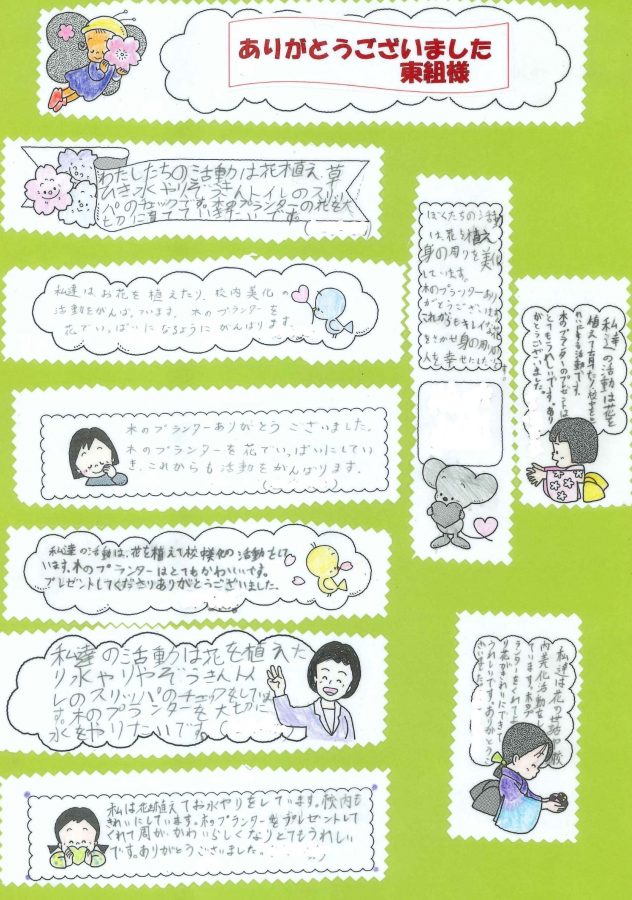 ありがとうございました
東組様
わたしたちの活動は花植え草
ひき水やりぞうきんトイレのスリッ
パのチェックです。木のプランターの花を大
切に育てていきたいです。
私達はお花を植えたり、校内美化の
活動をがんばっています。木のプランターを
花でいっぱいになるようにがんばります。
木のプランターありがとうございました。
木のプランターを花でいっぱいにしてい
き、これからも活動をがんばります。
私達の活動は、花を植えて校内美化の活動をして
います。木のプランターはとてもかわいいです。
プレゼントしてくださりありがとうございました。
私達の活動は花を植えた
り水やりやぞうきんトイ
レのスリッパのチェックをしていま
す。木のプランターを大切に
水をやりたいです。
私は花を植えてお水やりをしています。校内も
きれいにしています。木のプランターをプレゼントして
くれて周りがかわいらしくなりとてもうれしい
です。ありがとうございました。
ぼくたちの活動
は、花を植え
身の周りを美化
しています。
木のプランターあり
がとうございます。
これからもキレイな花
をさかせ身の周りの
人を幸せにしたいです。
私達の活動は花を
植えて育てたり校舎を
きれいにする活動です。
木のプランターのプレゼントは
とてもうれしいです。あり
がとうございました。
私達は花の世話や校
内美化活動をし
ています。木のプ
ランターをくれてよ
り花がきれいにできて
うれしいです。ありがとうご
ざいました。